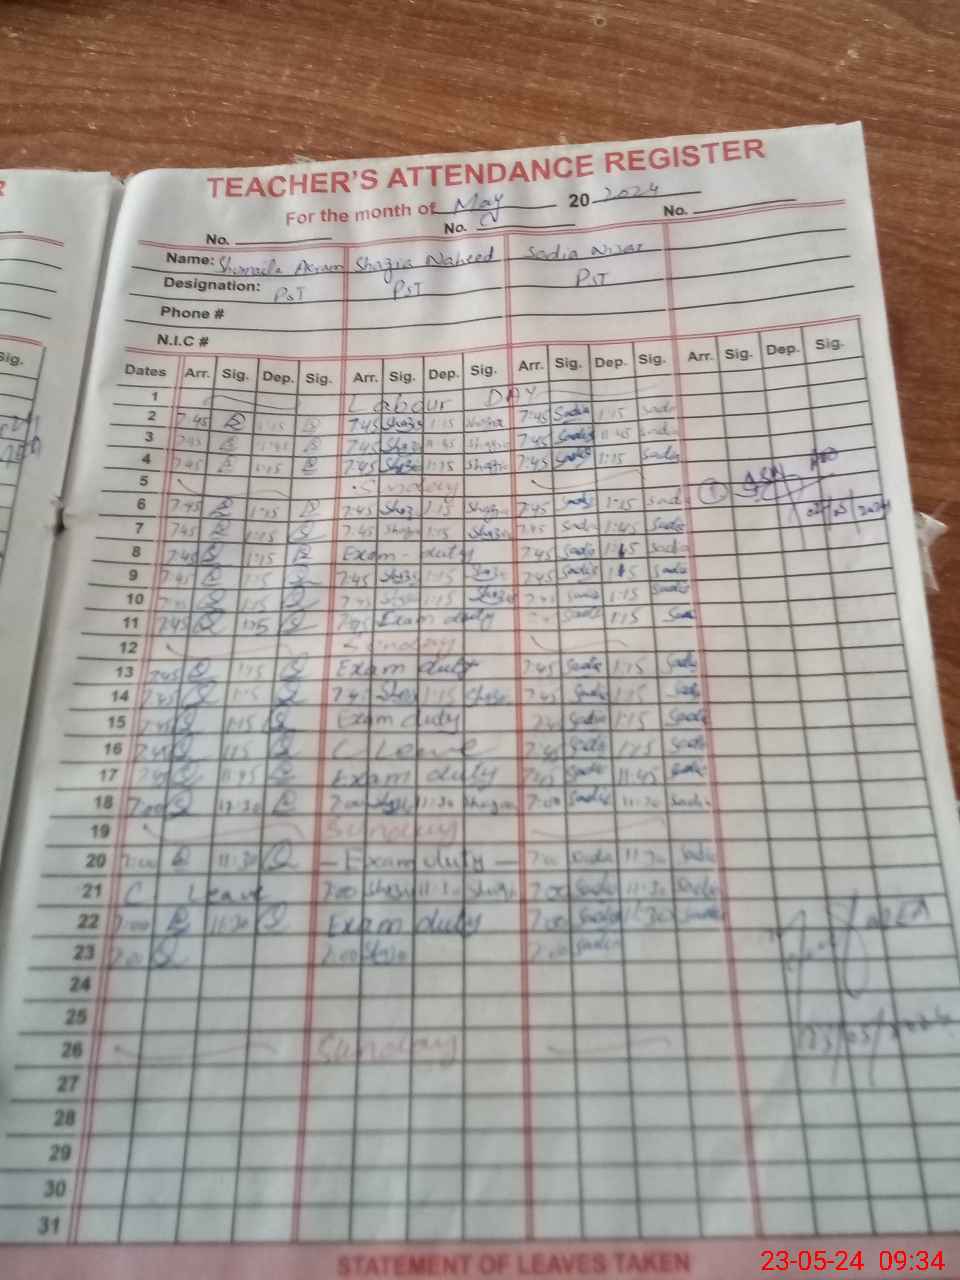 TEACHER'S ATTENDANCE REGISTER
For the month of May 20 2024
No. No. No.
Name: Shumaila Akram Shazia Naheed Sadia Nisar
Designation: PST PST PST
Phone #
N.I.C #
Dates Arr. Sig. Dep. Sig. Arr. Sig. Dep. Sig. Arr. Sig. Dep. Sig. Arr. Sig. Dep. Sig.
1 Labour DAY
2 7:45 1:15 7:45 Shazia 1:15 Shazia 7:45 Sadia 1:15 Sadia
3 7:45 11:45 7:45 Shazia 11:45 Shazia 7:45 Sadia 11:45 Sadia
4 7:45 1:15 7:45 Shazia 1:15 Shazia 7:45 Sadia 1:15 Sadia
5 Sunday
6 7:45 1:15 7:45 1:15 Shazia 7:45 Sadia 1:15 Sadia
7 7:45 1:15 7:45 Shazia 1:15 Shazia 7:45 Sadia Sadia
8 7:45 1:15 Exam-duty 7:45 Sadia 1:15 Sadia
9 7:45 1:15 7:45 Shazia 1:15 7:45 Sadia 1:15 Sadia
10 7:45 1:15 7:45 1:15 Shazia 7:45 Sadia 1:15 Sadia
11 7:45 1:15 7:45 Exam duty Sadia 1:15 Sadia
12 Sunday
13 7:45 1:15 Exam duty 7:45 Sadia 1:15 Sadia
14 7:45 1:15 7:45 Shazia 1:15 Shazia 7:45 Sadia 1:15 Sadia
15 7:45 1:15 Exam duty 7:45 Sadia 1:15 Sadia
16 7:45 1:15 C Leave 7:45 Sadia 1:15 Sadia
17 7:45 11:45 Exam duty 7:45 Sadia 11:45 Sadia
18 7:00 11:30 7:00 11:30 Shazia 7:00 Sadia 11:30 Sadia
19 Sunday
20 7:00 11:30 - Exam duty - 7:00 Sadia 11:30 Sadia
21 C Leave 7:00 Shazia 11:30 Shazia 7:00 Sadia 11:30 Sadia
22 7:00 11:30 Exam duty 7:00 Sadia 11:30 Sadia
23 7:00 7:00 Shazia 7:00 Sadia
24
25
26 Sunday
23/05/2024
27
28
29
30
31
STATEMENT OF LEAVES TAKEN
23-05-24 09:34